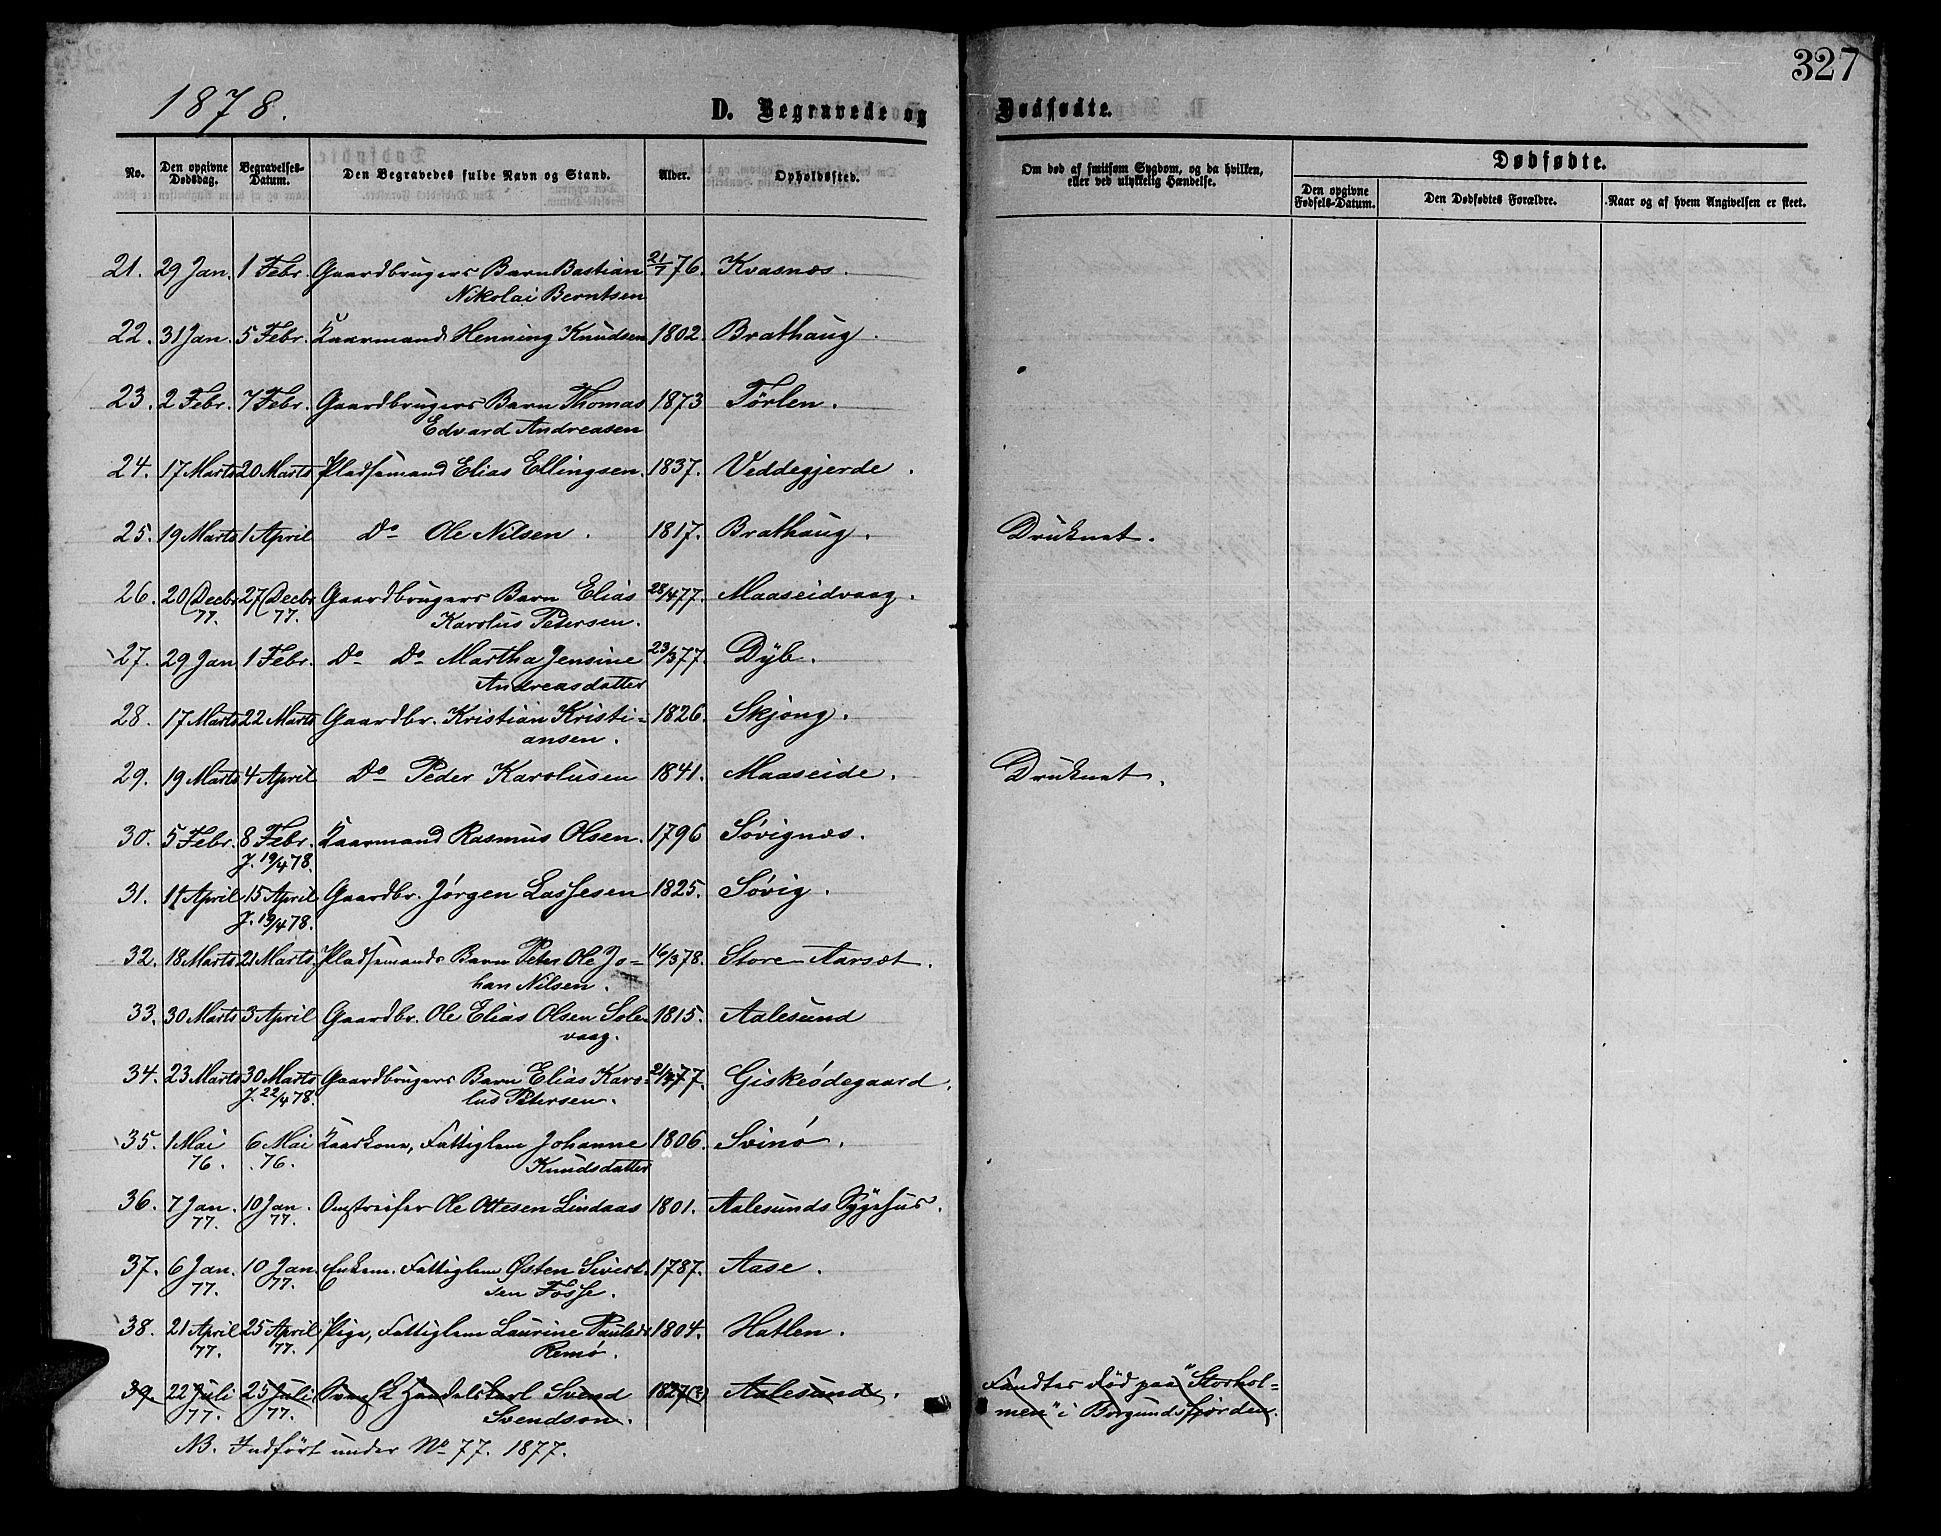 327
1878.
D. Begravede og Dødfødte.
No.
Den opgivne Dødsdag.
Begravelses-Datum.
Den Begravedes fulde Navn og Stand.
Alder.
Opholdssted.
Om død af smitsom Sygdom, og da hvilken, eller ved ulykkelig Hændelse.
Dødfødte.
Den opgivne Fødsels-Datum.
Den Dødfødtes Forældre.
Naar og af hvem Angivelsen er skeet.
21. 29 Jan. 1 Febr. Gaardbrugers Barn Bastian 21/7 76. Kvasnæs.
Nikolai Berntsen
22. 31 Jan. 5 Febr. Kaarmand Henning Knudsen 1802. Brathaug.
23. 2 Febr. 7 Febr. Gaardbrugers Barn Thomas 1873 Tørlen.
Edvard Andreasen
24. 17 Marts 20 Marts Pladsemand Elias Ellingsen. 1837. Veddegjerde.
25. 19 Marts 1 April Do Ole Nilsen. 1817. Brathaug. Druknet.
26. 20 Decbr 27 Decbr Gaardbrugers Barn Elias 28/4 77. Maaseidvaag.
77. 77. Karolus Pedersen.
27. 29 Jan 1 Febr. Do Do Martha Jensine 23/3 77. Dyb.
Andreasdatter
28. 17 Marts 22 Marts Gaardbr. Kristian Kristi- 1826. Skjong.
ansen.
29. 19 Marts 4 April Do Peder Karolusen 1841. Maaseide. Druknet.
30. 5 Febr. 8 Febr. Kaarmand Rasmus Olsen. 1796 Søvignæs.
J. 19/4 78.
31. 11 April 15 April Gaardbr. Jørgen Lassesen 1825. Søvig.
J. 19/4 78.
32. 18 Marts 21 Marts Pladsemands Barn Peter Ole Jo- 16/3 78. Store-Aarsæt.
han Nilsen.
33. 30 Marts 3 April Gaardbr. Ole Elias Olsen Sole- 1815. Aalesund
vaag.
34. 23 Marts 30 Marts Gaardbrugers Barn Elias Karo- 77. Giskeødegaard.
J. 22/4 78. lus Petersen.
35. 1 Mai 6 Mai Kaarkone, Fattiglem Johanne 1806. Svinø.
76. 76. Knudsdatter
36. 7 Jan. 10 Jan. Omstreifer Ole Ottesen Lindaas 1801. Aalesunds Sygehus.
77. 77.
37. 6 Jan. 10 Jan. Enkem. Fattiglem Østen Sivert- 1787. Aase.
77. 77. sen Fosse.
38. 21 April 25 April Pige, Fattiglem Laurine Paulsdr 1804. Hatlen.
77. 77. Remø.
39. 22 Juli 25 Juli Svensk Handelskarl Svend 1827(?) Aalesund. Fandtes død paa "Storhol-
77. 77. Svendson. men" i Borgundsfjorden.
NB. Indført under No 77. 1877.